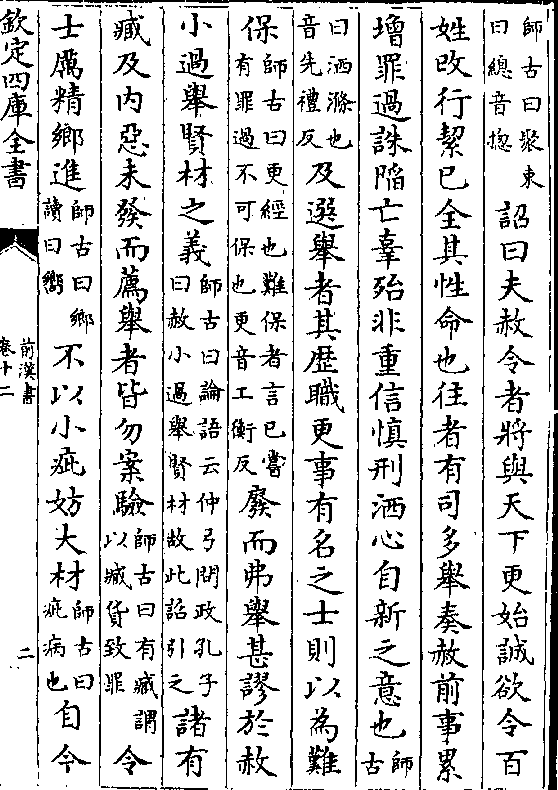 師古曰聚束曰總音揔詔曰夫赦令者將與天下更始誠欲令百
姓改行絜已全其性命也往者有司多舉奏赦前事累
增罪過誅陷亡辜殆非重信慎刑洒心自新之意也師古
曰洒滌也音先禮反及選舉者其歷職更事有名之士則以為難
保師古曰更經也難保者言已嘗有罪過不可保也更音工衡反廢而弗舉甚謬於赦
小過舉賢材之義師古曰論語云仲弓問政孔子曰赦小過舉賢材故此詔引之諸有
臧及內惡未發而薦舉者皆勿案驗師古曰有臧謂以臧貨致罪令
士厲精鄉進師古曰鄉讀曰嚮不以小疵妨大材師古曰疵病也自今
欽定四庫全書
前漢書
卷十二
二